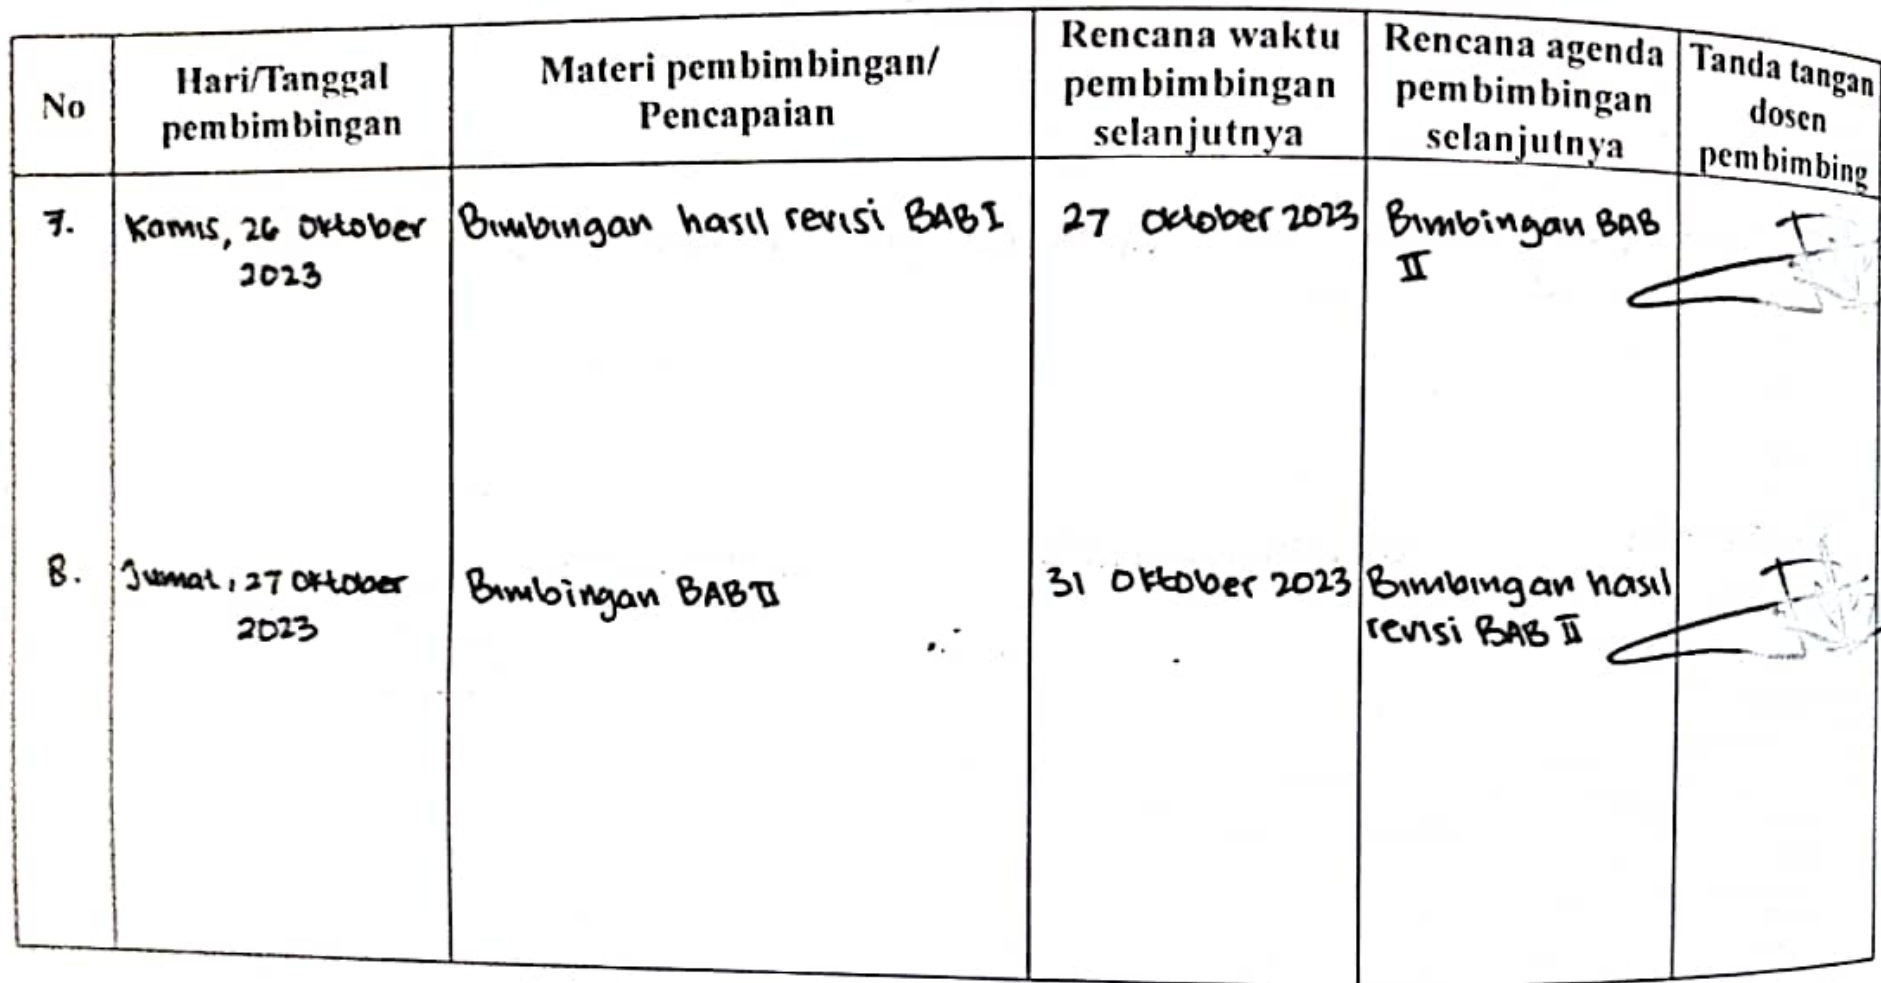 No
Hari/Tanggal
pembimbingan
Materi pembimbingan/
Pencapaian
Rencana waktu
pembimbingan
selanjutnya
Rencana agenda
pembimbingan
selanjutnya
Tanda tangan
dosen
pembimbing
7.
Kamis, 26 Oktober
2023
Bimbingan hasil revisi BAB I
27 Oktober 2023
Bimbingan BAB
II
8.
Jumat, 27 Oktober
2023
Bimbingan BAB II
31 Oktober 2023
Bimbingan hasil
revisi BAB II